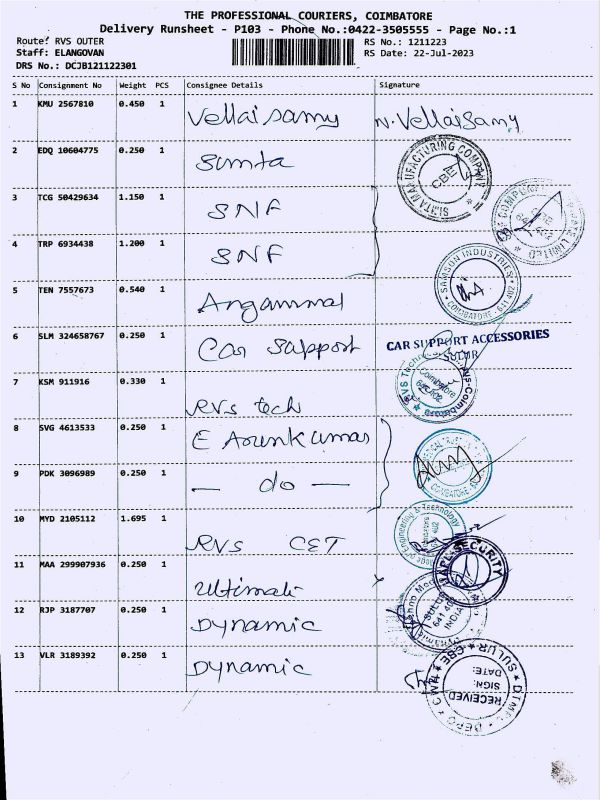 THE PROFESSIONAL COURIERS, COIMBATORE
Delivery Runsheet - P103 - Phone No.:0422-3505555 - Page No.:1
Route: RVS OUTER RS No.: 1211223
Staff: ELANGOVAN RS Date: 22-Jul-2023
DRS No.: DCJB121122301
S No Consignment No Weight PCS Consignee Details Signature
1 KMU 2567810 0.450 1 Vellaisamy N. Vellaisamy
2 EDQ 10604775 0.250 1 Simta
SIMTA MANUFACTURING COMPANY CBE
3 TCG 50429634 1.150 1 SNF
4 TRP 6934438 1.200 1 SNF
SAMSON INDUSTRIES COIMBATORE - 641 402
5 TEN 7557673 0.540 1 Angammal
6 SLM 324658767 0.250 1 Car Support
CAR SUPPORT ACCESSORIES
SULUR
7 KSM 911916 0.330 1 RVS tech
8 SVG 4613533 0.250 1 E Arunkumar
9 PDK 3096989 0.250 1 — do —
10 MYD 2105112 1.695 1 RVS CET
11 MAA 299907936 0.250 1 Ultimate
SECURITY
12 RJP 3187707 0.250 1 Dynamic
SULUR
INDIA
13 VLR 3189392 0.250 1 Dynamic
SULUR CBE
DATE:
SIGN:
RECEIVED